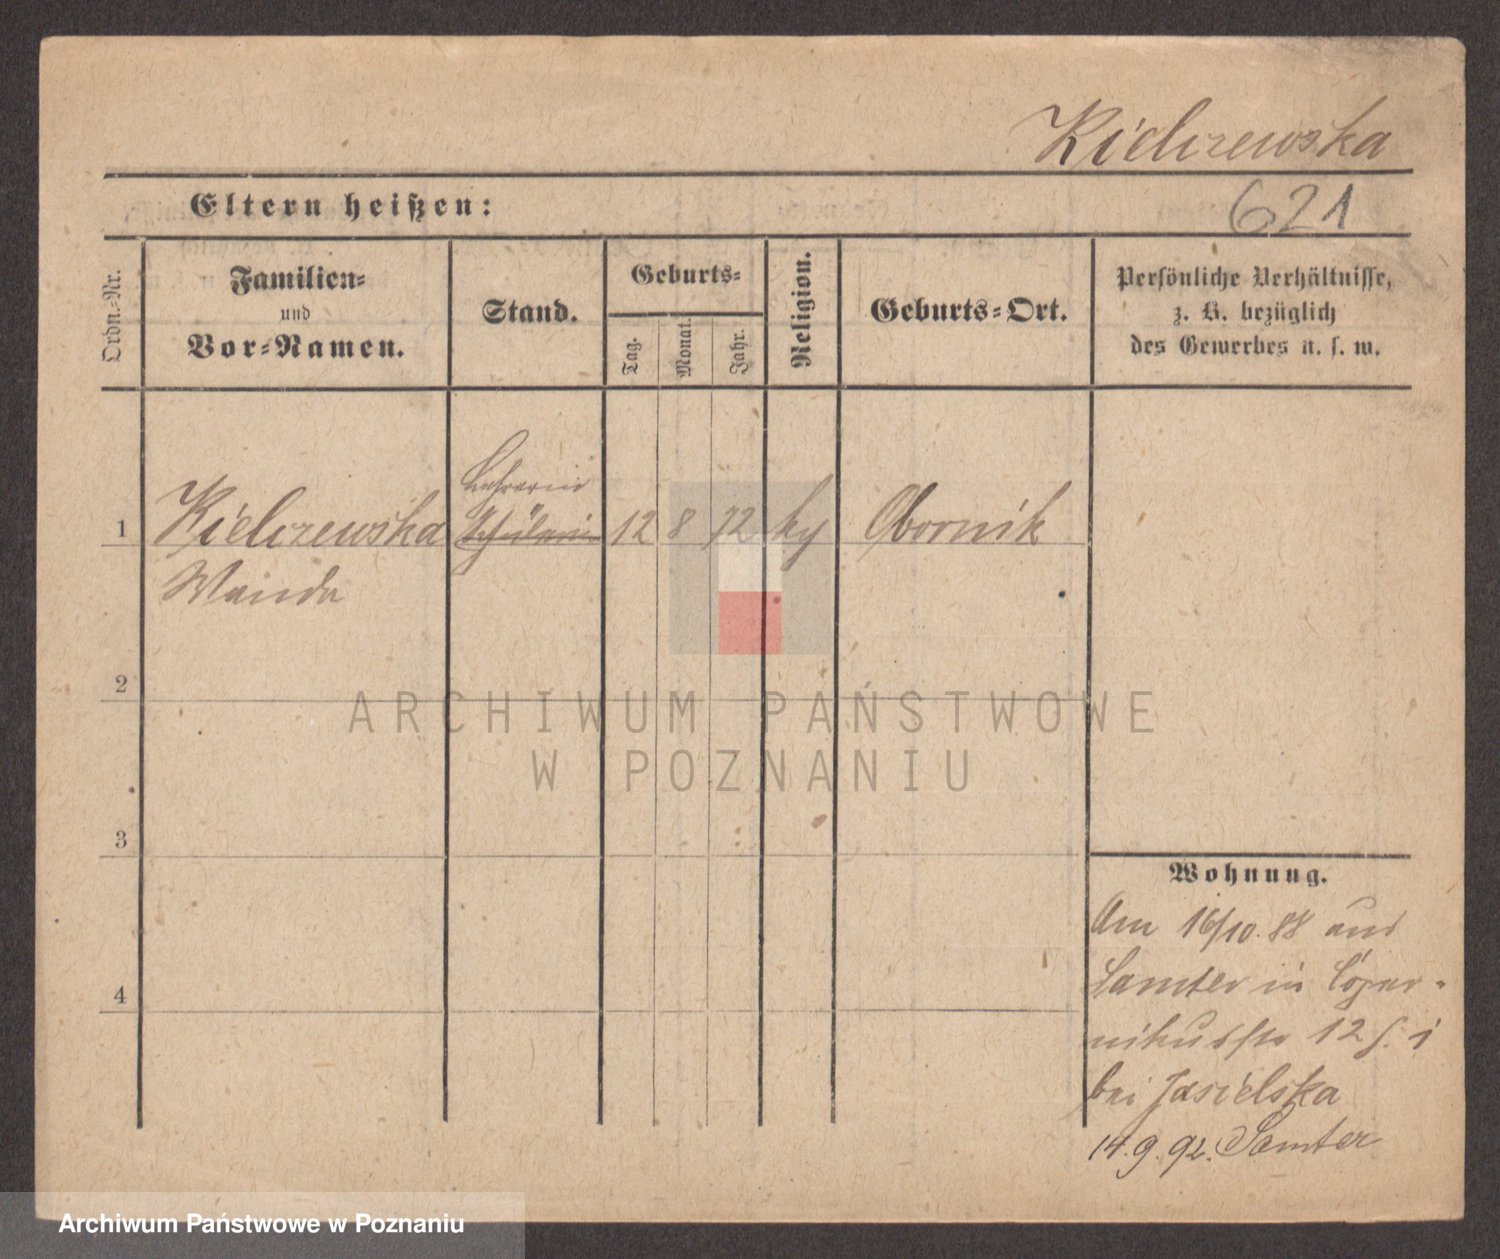 Kielczewska
Eltern heißen:
621
Ordn.-Nr.
Familien-
und
Vor-Namen.
Stand.
Geburts-
Tag.
Monat.
Jahr.
Religion.
Geburts-Ort.
Persönliche Verhältnisse,
z. B. bezüglich
des Gewerbes u. s. w.
Lehrerin
1 Kielczewska Schülerin 12 8 72 ky Obornik
Wanda
2
3
4
ARCHIWUM PAŃSTWOWE
W POZNANIU
Wohnung.
Am 16/10. 88 aus
Samter in Coper-
nikusstr 12 S. i
bei Jasielska
14. 9. 92. Samter
Archiwum Państwowe w Poznaniu